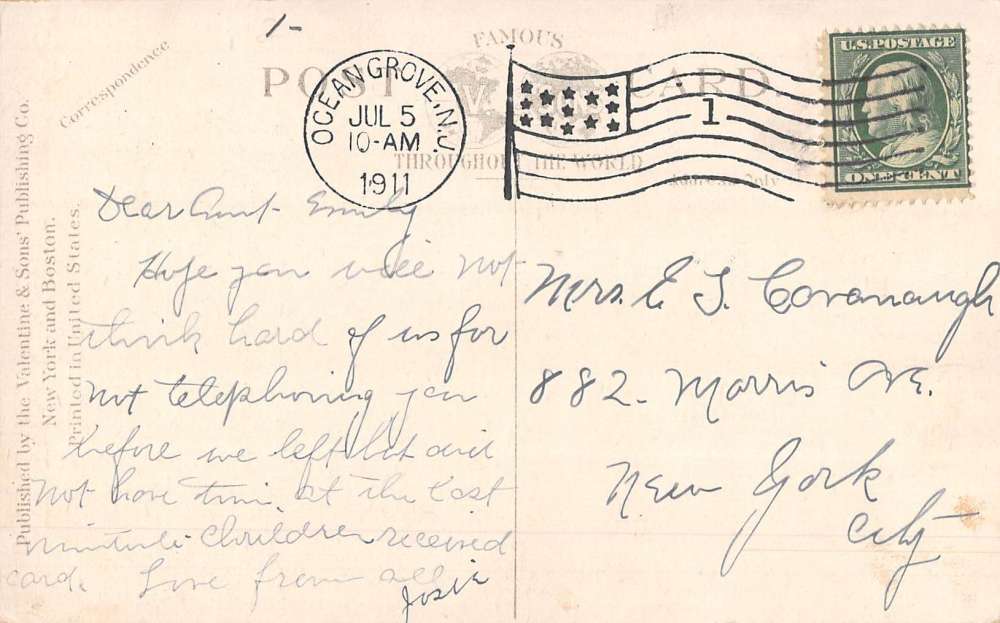 1-
FAMOUS
POST CARD.
THROUGHOUT THE WORLD
Correspondence
Address Only
OCEAN GROVE, N.J.
JUL 5
10-AM
1911
1
U.S. POSTAGE
ONE CENT
Published by the Valentine & Sons' Publishing Co.
New York and Boston.
Printed in United States.
Dear Aunt Emily
Hope you will not
think hard of us for
not telephoning you
before we left but did
not have time at the last
minute. Children received
card. Love from all
Josie
Mrs. E J. Cavanaugh
882 - Morris Ave.
New York
City